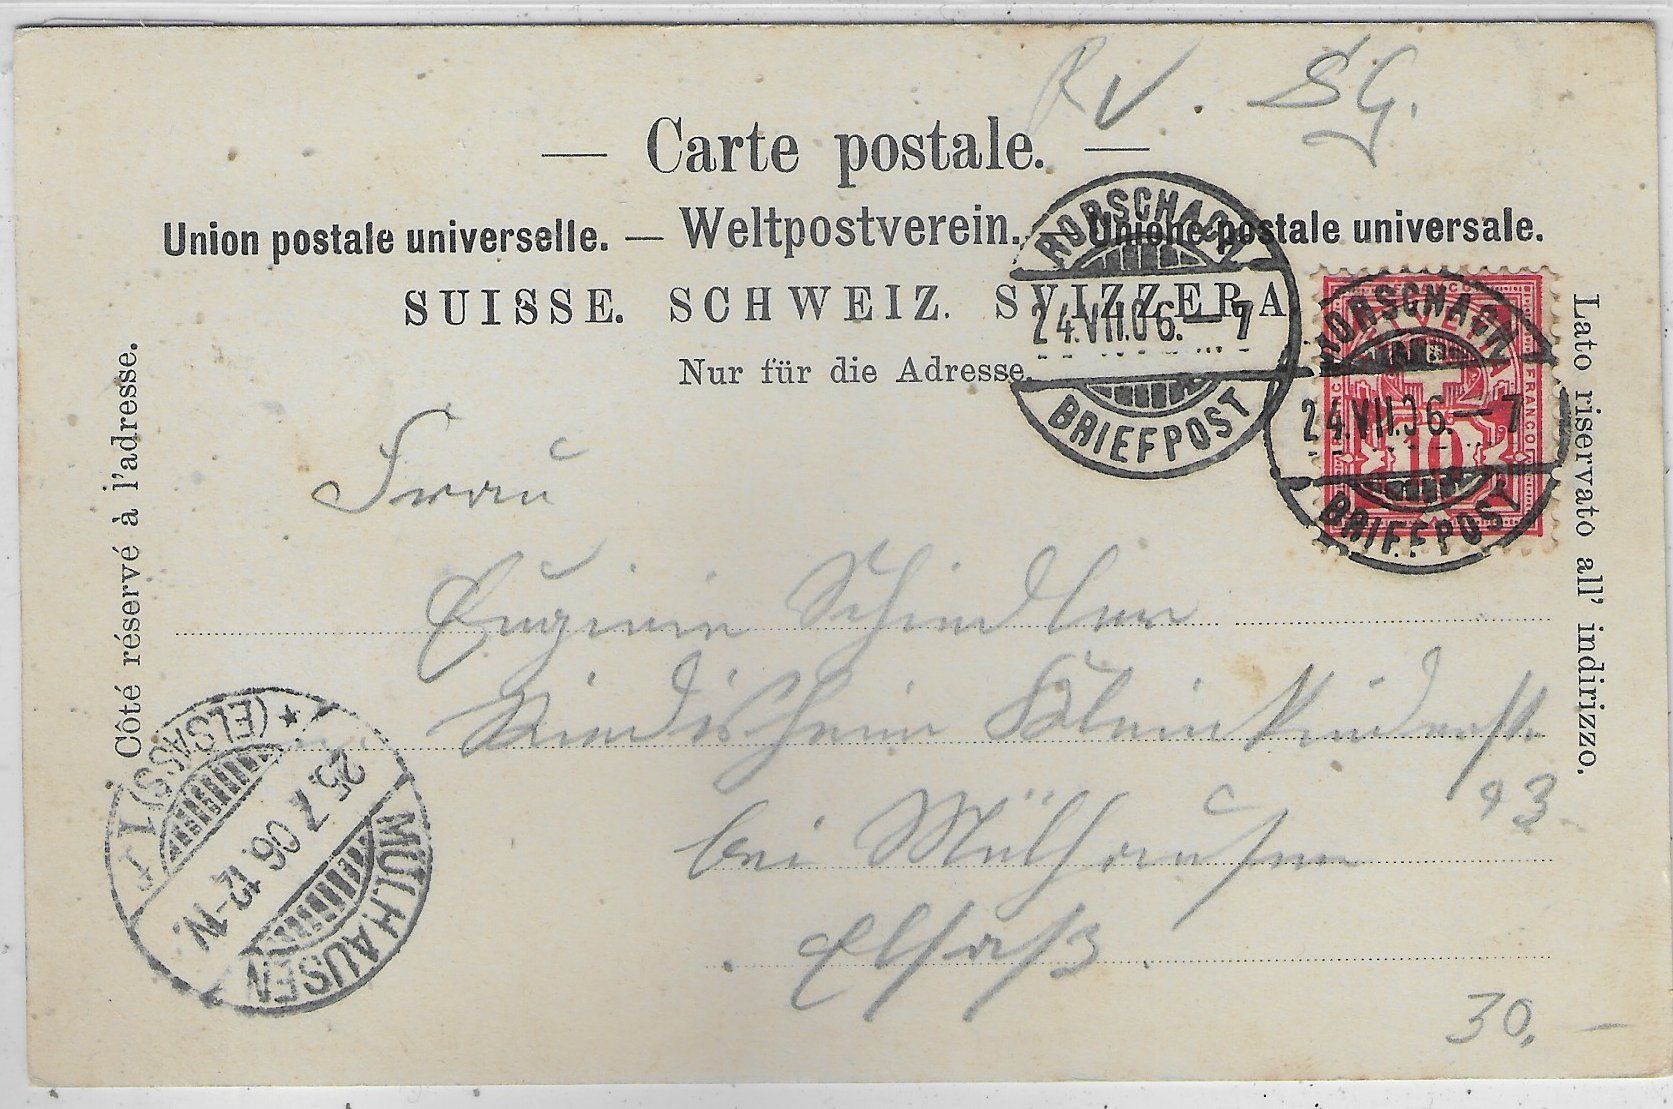 RV. SG.
— Carte postale. —
Union postale universelle. — Weltpostverein. Unione postale universale.
SUISSE. SCHWEIZ. SVIZZERA
Nur für die Adresse.
Côté réservé à l'adresse.
Lato riservato all' indirizzo.
RORSCHACH
24.VII.06.—7
BRIEFPOST
RORSCHACH
24.VII.06.—7
BRIEFPOST
FRANCO
10
Frau
Eugenie Schindler
Riedisheim Kleinkinderst.
93
bei Mülhausen
Elsaß.
MÜLHAUSEN
25.7.06.12-1N.
* (ELSASS) 1
30.–